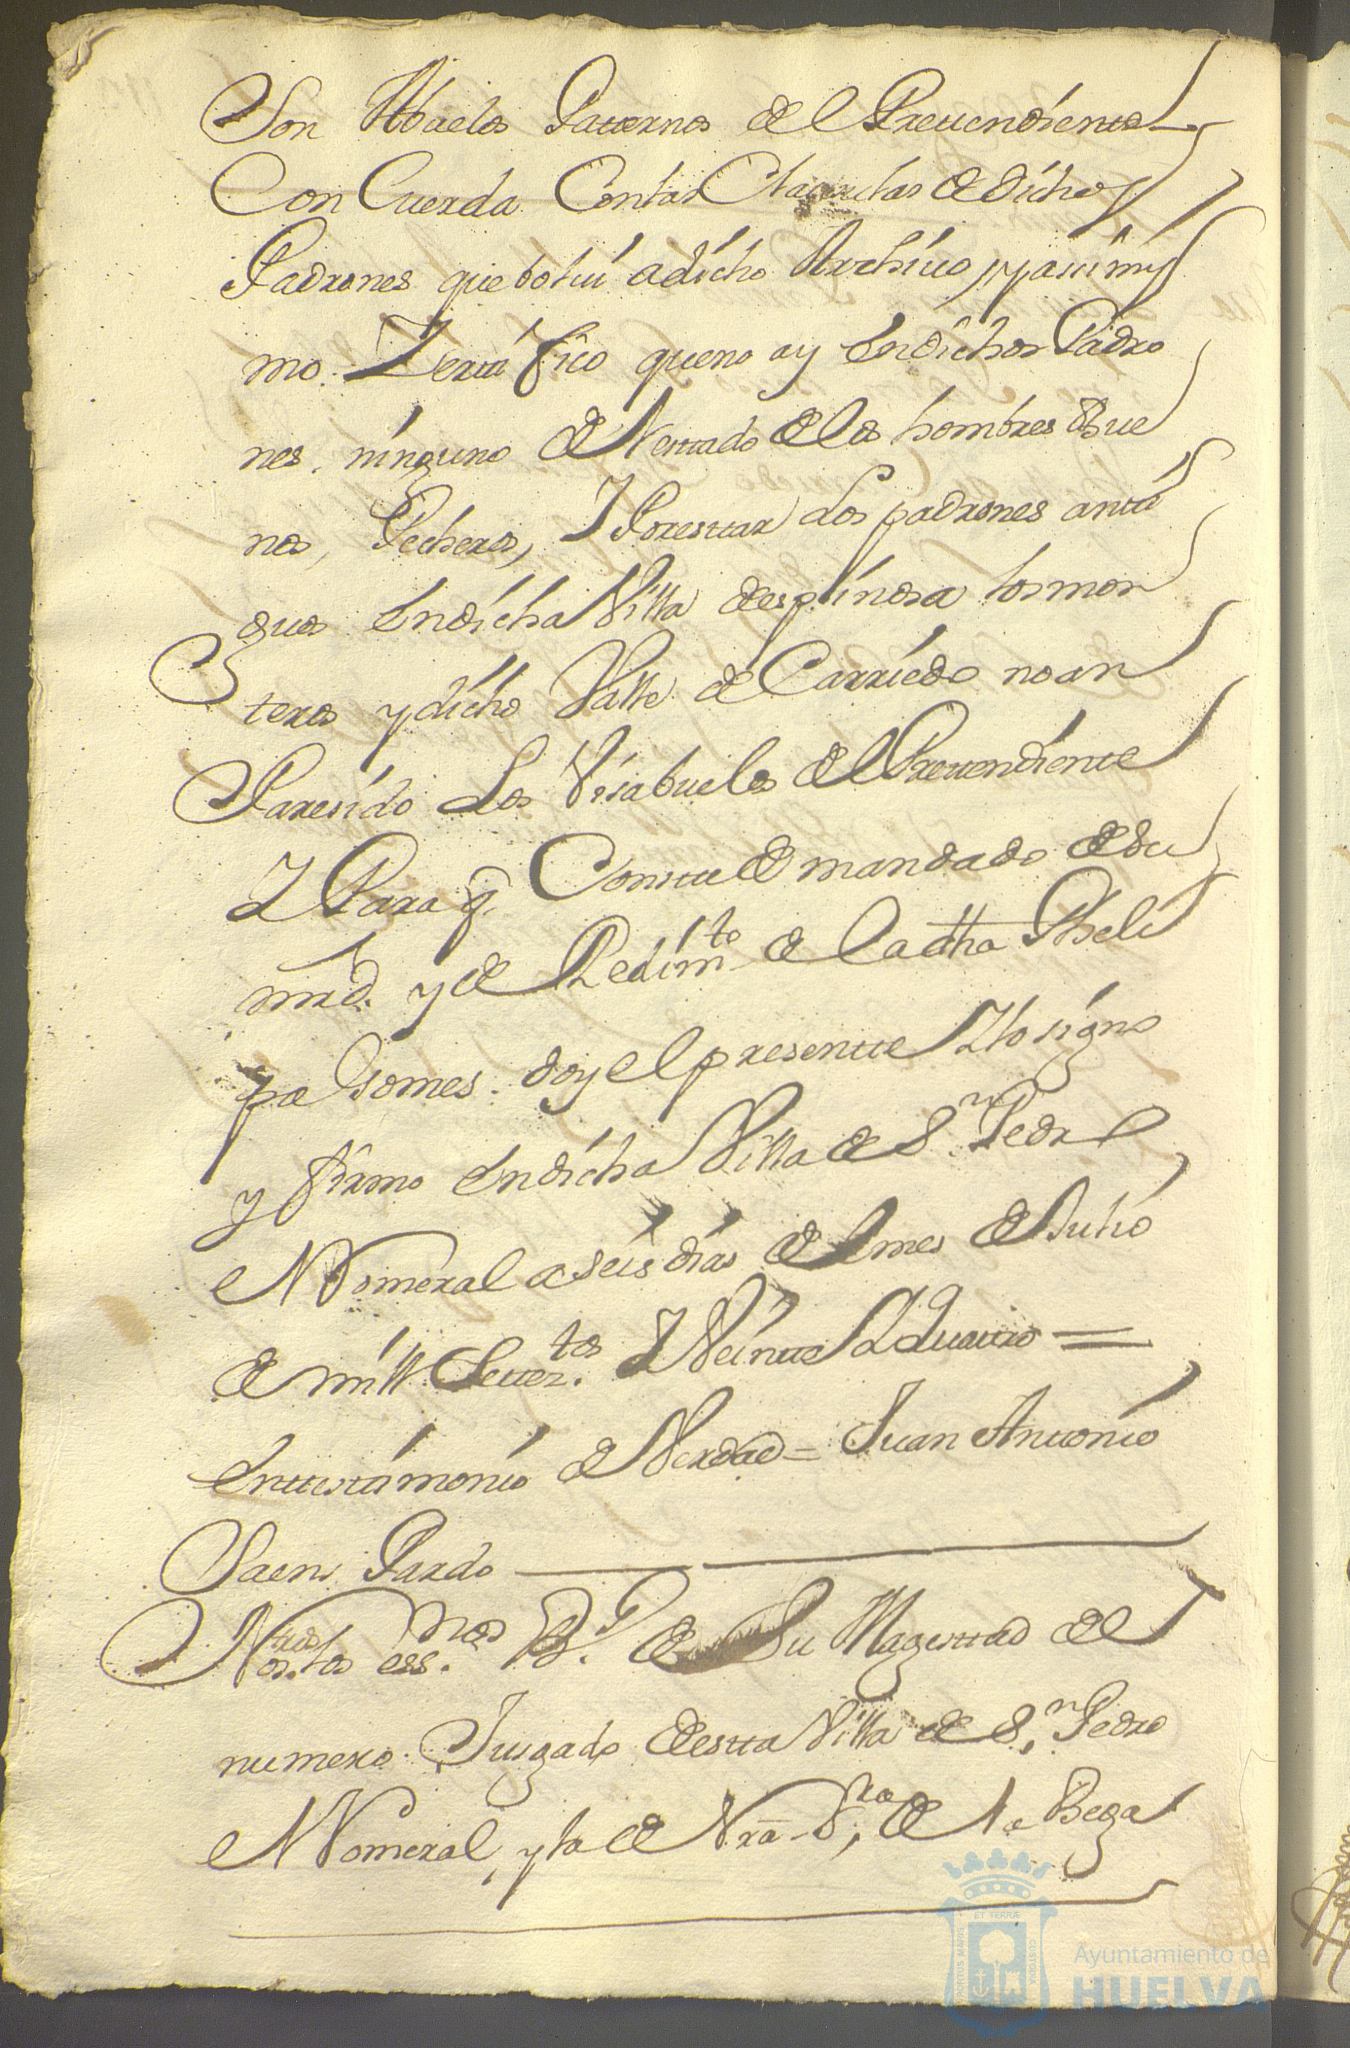 Son Abuelos Paternos de el Pretendiente
Con Cuerda Con las Clausulas de dichos
Padrones que bolui a dicho Archivo, y asi mis
mo. Zertifico que no ay En dichos Padro
nes, ninguno de Nestado de los hombres Bue
nos, Pecheros, Y Por estar Los padrones anti
guos En dicha Villa de espinosa los mon
teros y dicho Valle de Carriedo no an
Paresido Los Visabuelos de el Pretendiente
Y Para q. Conste de mandado de su
mrd. y de Pedim.to de la dha Pheli
pa Gomes. doy el presente Y lo signo
y firmo En dicha Villa de S.n Pedro
el Romeral a seis dias de el mes de Julio
de mill Setez.tos Y Veinte Y Quatro =
En testimonio de Verdad = Juan Antonio
Saens Pardo
Nos. los ess.nos de Su Magestad de el
numero Juzgado de esta Villa de S.n Pedro
el Romeral, y la de Nra S.ra de la Bega
Ayuntamiento de
HUELVA